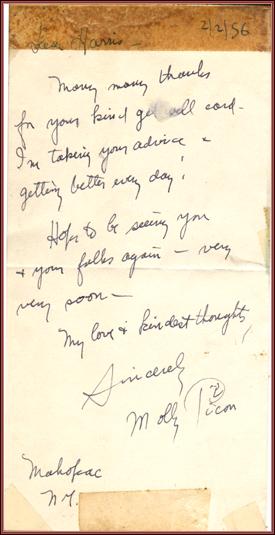 2/2/56
Dear Harris –
Many many thanks
for your kind get well card –
I'm taking your advice &
getting better every day!
Hope to be seeing you
& your folks again – very
very soon –
My love & kindest thoughts,
Sincerely
Molly Picon
Mahopac
N.Y.